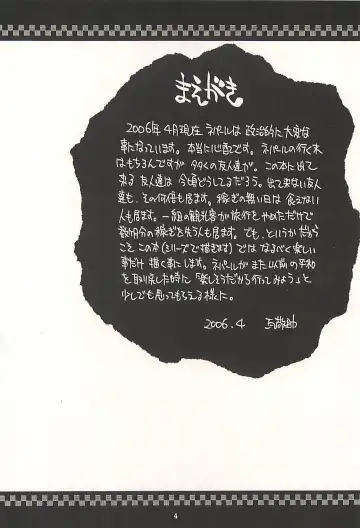 まえがき
2006年4月現在 ネパールは 政治的に大変な
事になっています。本当に心配です。ネパールの行く末
はもちろんですが 多くの友人達が。この本に出て
来る友人達は 今頃どうしてるだろう。出て来ない友人
達も、その何倍も居ます。稼ぎの無い日は 食えない
人も居ます。一組の観光客が旅行をやめただけで
数日分の稼ぎを失う人も居ます。でも、というかだから
こそ この本(シリーズで描きます)では なるべく楽しい
事だけ 描く事にします。ネパールが また以前の平和
を取り戻した時に「楽しそうだから行ってみよう」と
少しでも思ってもらえる様に。
2006.4
4